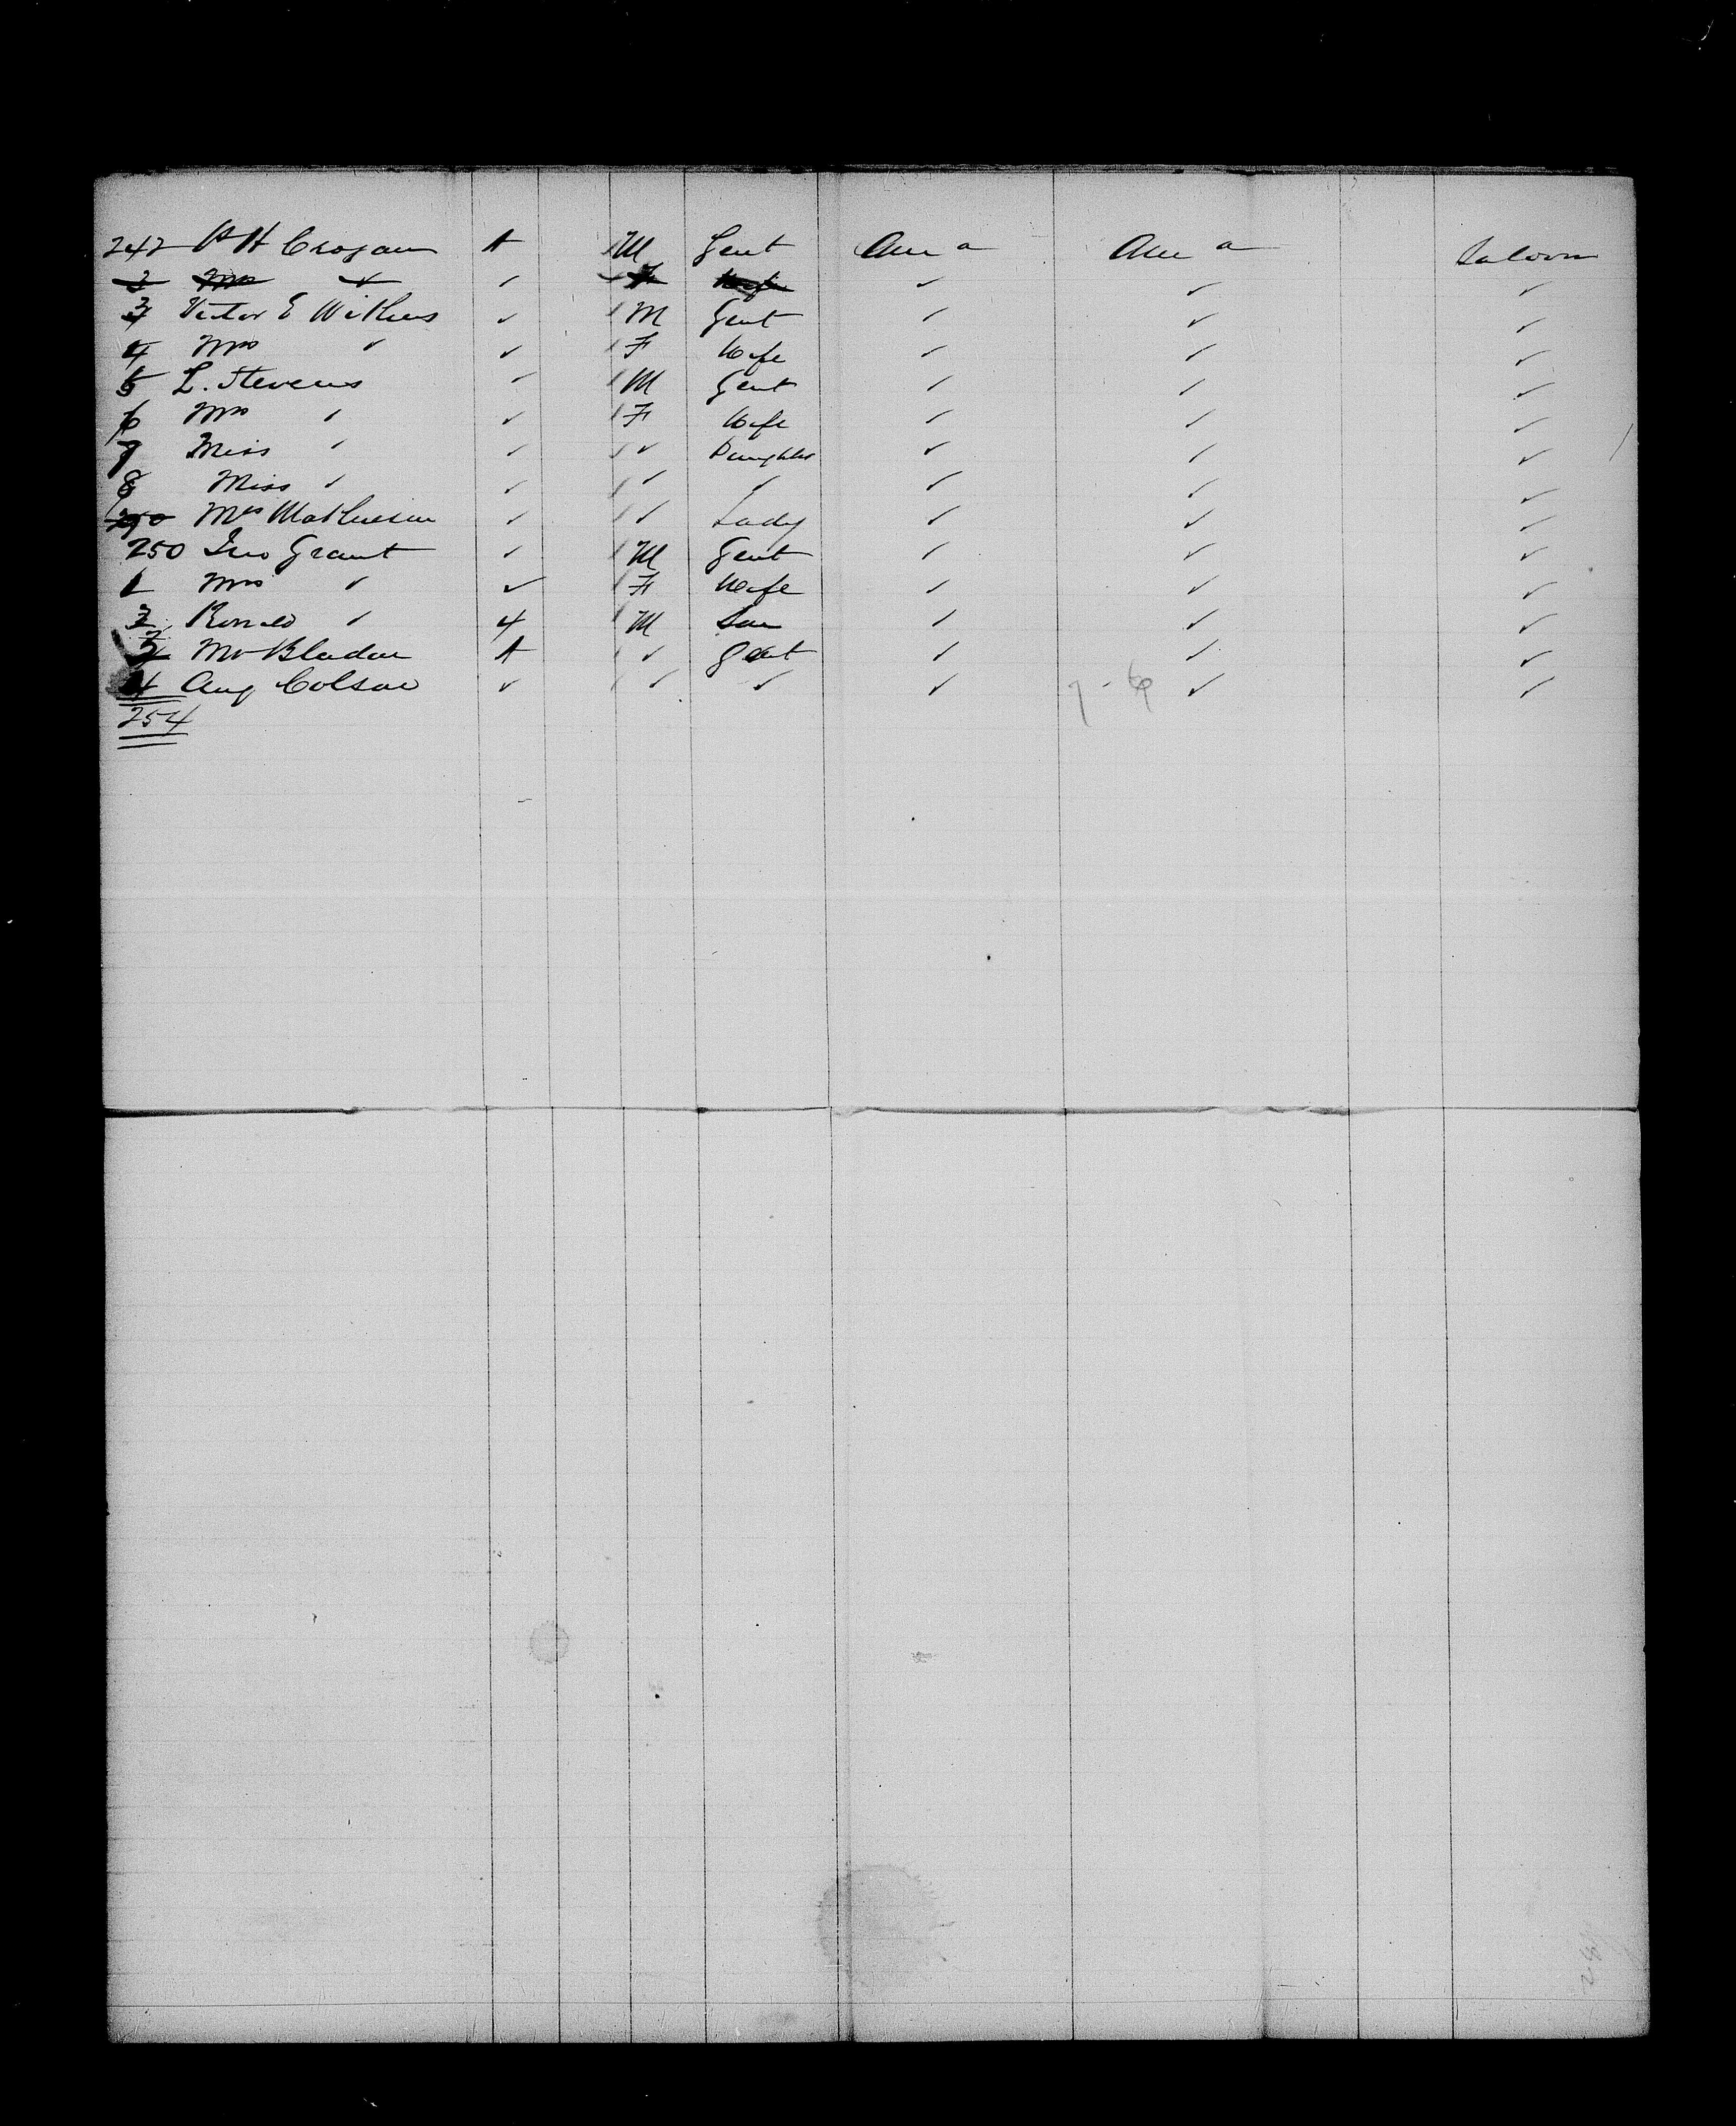 242 H Crogan A M Gent Ame a Ame a Saloon
3 Mrs ✓ ✓ F Wife ✓ ✓ ✓
3 Victor E Withers ✓ M Gent ✓ ✓ ✓
4 Mrs ✓ ✓ F Wife ✓ ✓ ✓
5 L. Stevens ✓ M Gent ✓ ✓ ✓
6 Mrs ✓ ✓ F Wife ✓ ✓ ✓
7 Miss ✓ ✓ ✓ Daughter ✓ ✓ ✓
8 Miss ✓ ✓ ✓ ✓ ✓ ✓ ✓
Mrs Mathieson ✓ ✓ Lady ✓ ✓ ✓
250 Jno Grant ✓ M Gent ✓ ✓ ✓
1 Mrs ✓ ✓ F Wife ✓ ✓ ✓
2 Ronald ✓ 4 M Son ✓ ✓ ✓
3 Mr Bladon A ✓ Gent ✓ ✓ ✓
4 Aug Colson ✓ ✓ ✓ ✓ ✓ ✓
254